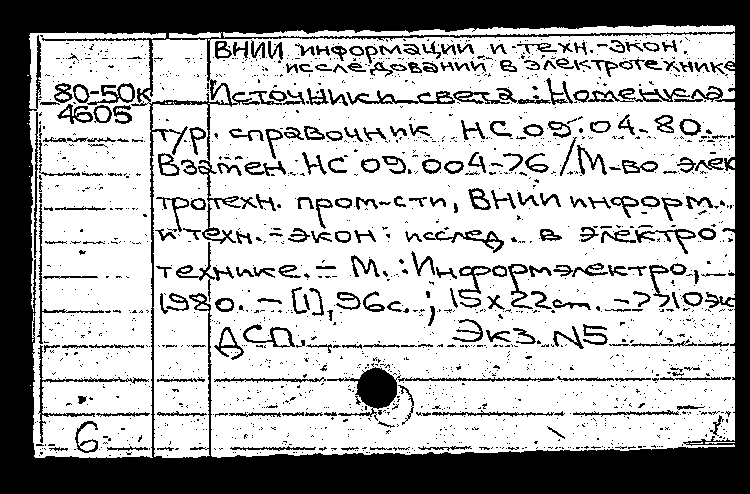 ВНИИ информации и техн.-экон.
исследований в электротехнике
80-50к
4605
Источники света : Номенкла-
тур. справочник НС 09.04-80.
Взамен НС 09.004-76 / М-во элек
тротехн. пром-сти, ВНИИ информ.
и техн.-экон. исслед. в электро-
технике. - М. : Информэлектро,
1980. - [1], 96с. ; 15х22 см. - 
ДСП. Экз. N5
6